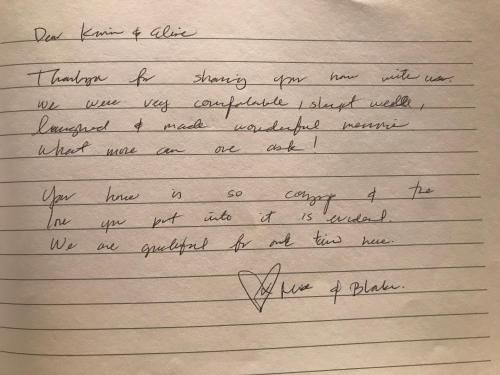 Dear Karin & Aline
Thankyou for sharing your home with us.
We were very comfortable, slept well,
laughed & made wonderful memories
what more can one ask!
Your home is so cozy & the
love you put into it is evident.
We are grateful for our time here.
& Blake.